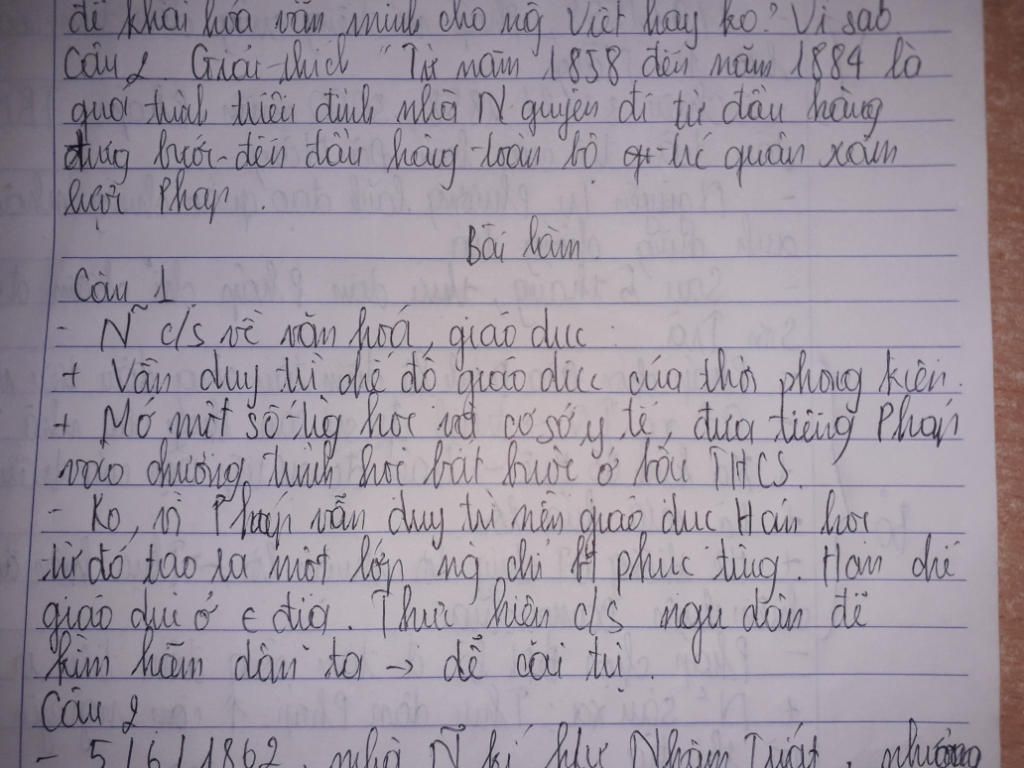 để khai hóa văn minh cho ng Việt hay ko? Vì sao
Câu 2. Giải thích "Từ năm 1858 đến năm 1884 là
quá trình triều đình nhà Nguyễn đi từ đầu hàng
từng bước đến đầu hàng toàn bộ trc quân xâm
lược Pháp.
Bài làm
Câu 1
- N~ c/s về văn hoá, giáo dục:
+ Vẫn duy trì chế độ giáo dục của thời phong kiến.
+ Mở một số trg học và cơ sở y tế, đưa tiếng Pháp
vào chương trình học bắt buộc ở bậc THCS.
- Ko, vì Pháp vẫn duy trì nền giáo dục Hán học
từ đó tạo ra một lớp ng chỉ phục tùng. Hạn chế
giáo dục ở € địa. Thực hiện c/s ngu dân để
kìm hãm dân ta → dễ cai trị.
Câu 2
- 5/6/1862, nhà N~ kí H/ư Nhâm Tuất, nhượng